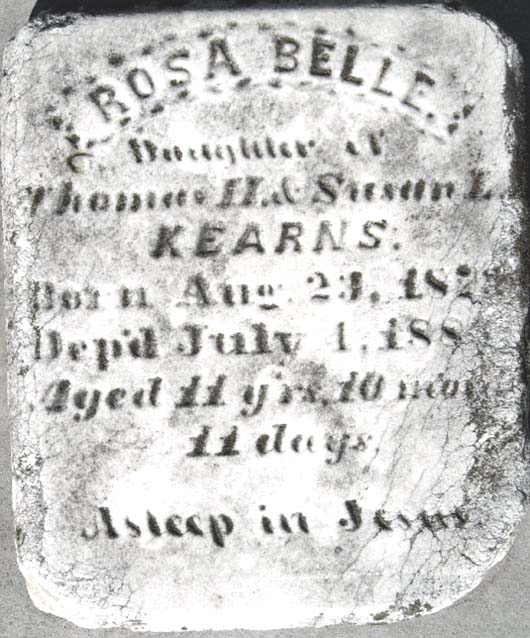 ROSA BELLE.
Daughter of
Thomas H. & Susan L.
KEARNS.
Born Aug. 23,
Dep'd July 4,
Aged 11 yrs, 10 mos
11 days,
Asleep in Jesus.